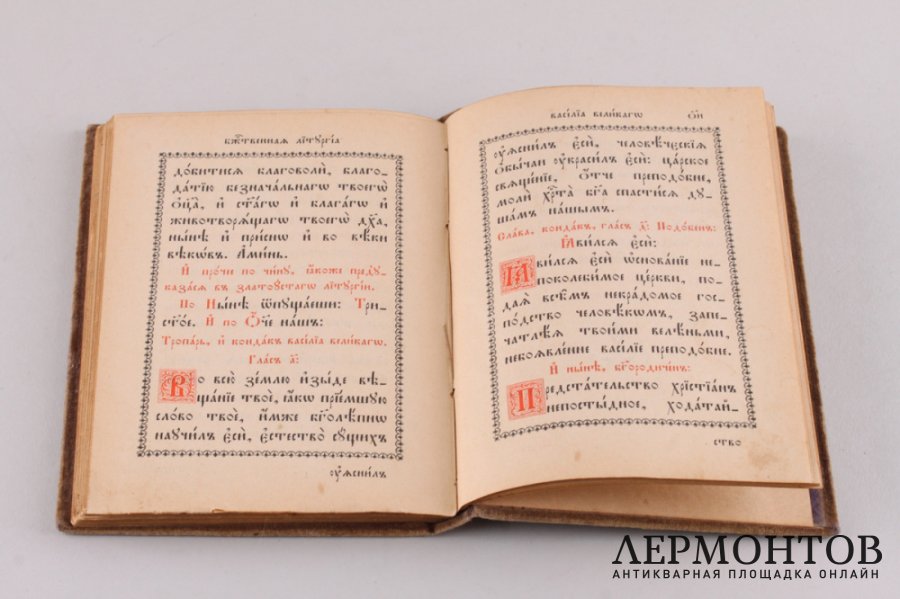 бж҃твенная лїтꙋргі́а
до́битисѧ благоволѝ, благо-
да́тїю безнача́льнагѡ твоегѡ̀
ѻ҆ц҃а̀, и҆ ст҃а́гѡ и҆ блаѓагѡ и҆
животворѧ́щагѡ твоегѡ̀ дх҃а,
ны́нѣ и҆ при́снѡ и҆ во вѣ́ки
вѣкѡ́въ. А҆ми́нь.
И҆ про́че по чи́нꙋ, ꙗ҆́коже предꙋ-
каза́сѧ въ златоꙋ́стагѡ лїтꙋргі́и.
По Ны́нѣ ѿпꙋща́еши: Три-
ст҃о́е. И҆ по Ѻ҆́ч҃е на́шъ:
Тропа́рь, и҆ конда́къ васі́лїа вели́кагѡ,
Гла́съ а҃:
Во всю̀ зе́млю и҆зы́де вѣ-
ща́нїе твоѐ, ꙗ҆́кѡ прїе́мшꙋю
сло́во твоѐ, и҆́мже бг҃олѣ́пнѡ
наꙋчи́лъ є҆сѝ, є҆стество̀ сꙋ́щихъ
ᲂу҆ѧсни́лъ
васі́лїа вели́кагѡ
ᲂу҆ѧсни́лъ є҆сѝ, человѣ́чєскїѧ
ѻ҆бы́чаи ᲂу҆краси́лъ є҆сѝ: ца́рское
свѧще́нїе, ѻ҆́тче преподо́бне,
молѝ хр҃та̀ бг҃а спасти́сѧ дꙋ-
ша́мъ на́шымъ.
Сла́ва, конда́къ, гла́съ д҃: Подо́бенъ:
Ꙗ҆ви́лсѧ є҆сѝ:
Ꙗ҆ви́лсѧ є҆сѝ ѡ҆снова́нїе не-
поколеби́мое цр҃кви, по-
даѧ̀ всѣ̑мъ некра́домое гос-
по́дство человѣ́кѡмъ, запе-
чатлѣ́ѧ твои́ми велѣ́ньми,
небоѧвле́нне васі́лїе преподо́бне.
И҆ ны́нѣ, бг҃оро́диченъ:
Предста́тельство хрїстїа́нъ
непосты́дное, хода́тай-
ство
ЛЕРМОНТОВ
АНТИКВАРНАЯ ПЛОЩАДКА ОНЛАЙН